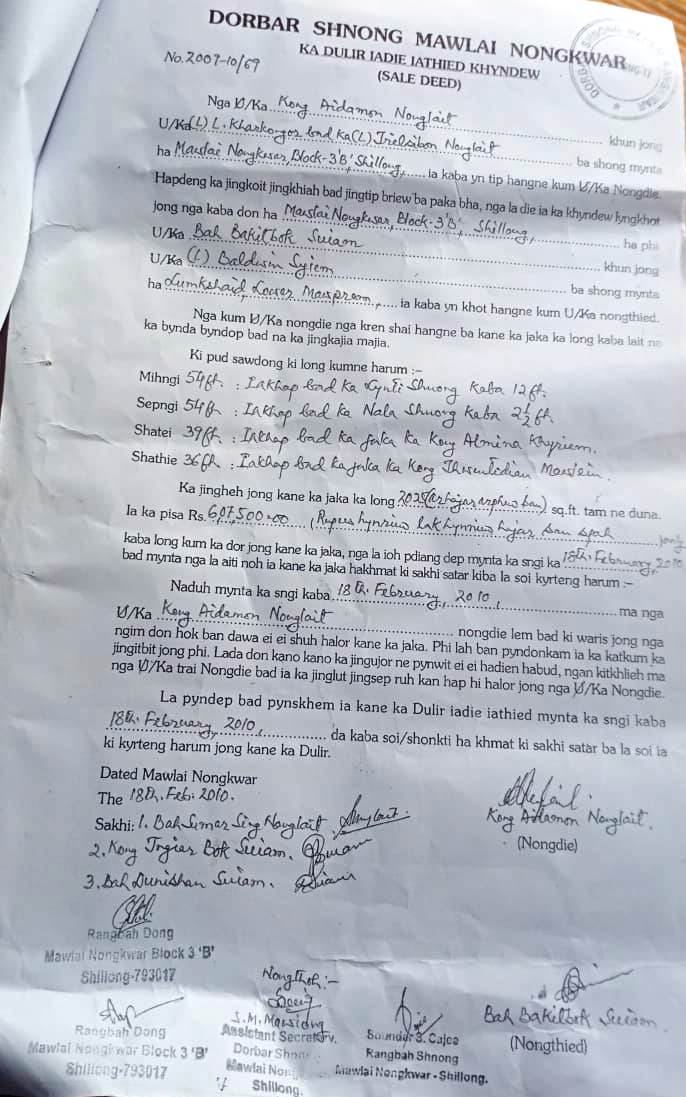 DORBAR SHNONG MAWLAI NONGKWAR
KA DULIR IADIE IATHIED KHYNDEW
No. 2009-10/69
(SALE DEED)
Nga U/Ka Kong Aidamon Nonglait khun jong
U/Ka (L) L. Kharkongor bad Ka (L) Trielsibon Nonglait ba shong mynta
ha Mawlai Nongkwar, Block-3'B', Shillong, ia kaba yn tip hangne kum U/Ka Nongdie.
Hapdeng ka jingkoit jingkhiah bad jingtip briew ba paka bha, nga la die ia ka khyndew lyngkhot
jong nga kaba don ha Mawlai Nongkwar, Block-3'B', Shillong, ha phi
U/Ka Bah Bakitbok Suiam khun jong
U/Ka (L) Baldwin Syiem ba shong mynta
ha Lumkshaid, Lower Mawprem, ia kaba yn khot hangne kum U/Ka nongthied.
Nga kum U/Ka nongdie nga kren shai hangne ba kane ka jaka ka long kaba lait na
ka bynda byndop bad na ka jingkajia majia.
Ki pud sawdong ki long kumne harum :-
Mihngi 54ft. : Iakhap bad ka Gyuti Shnong kaba 12 ft.
Sepngi 54ft. : Iakhap bad ka Nala Shnong kaba 2 1/2 ft.
Shatei 39ft. : Iakhap bad ka jaka ka Kong Almina Khyriem.
Shathie 36ft. : Iakhap bad ka jaka ka Kong Mawlein.
Ka jingheh jong kane ka jaka ka long 2025 (arhajar arphew san) sq.ft. tam ne duna.
Ia ka pisa Rs. 6,07,500.00 (Rupees hynriew lakh hynniew hajar san spah jong
kaba long kum ka dor jong kane ka jaka, nga la ioh pdiang dep mynta ka sngi ka 18th, February, 2010
bad mynta nga la aiti noh ia kane ka jaka hakhmat ki sakhi satar kiba la soi kyrteng harum :-
Naduh mynta ka sngi kaba 18th. February, 2010, ma nga
U/Ka Kong Aidamon Nonglait nongdie lem bad ki waris jong nga
ngim don hok ban dawa ei ei shuh halor kane ka jaka. Phi lah ban pyndonkam ia ka katkum ka
jingitbit jong phi. Lada don kano kano ka jingujor ne pynwit ei ei hadien habud, ngan kitkhlieh ma
nga U/Ka trai Nongdie bad ia ka jinglut jingsep ruh kan hap hi halor jong nga U/Ka Nongdie.
La pyndep bad pynskhem ia kane ka Dulir iadie iathied mynta ka sngi kaba
18th. February, 2010, da kaba soi/shonkti ha khmat ki sakhi satar ba la soi ia
ki kyrteng harum jong kane ka Dulir.
Dated Mawlai Nongkwar
The 18th. Feb. 2010.
Sakhi: 1. Bah Sumar Sing Nonglait
Kong Aidamon Nonglait.
(Nongdie)
2. Kong Bok Suiam.
3. Bah Dunishan Suiam.
Rangbah Dong
Mawlai Nongkwar Block 3 'B'
Shillong-793017
Rangbah Dong
Mawlai Nongkwar Block 3 'B'
Shillong-793017
Nongthoh :-
S.M. Mawsiang
Assistant Secretary.
Dorbar Shnong
Mawlai Nong
Shillong.
S. Cajee
Rangbah Shnong
Mawlai Nongkwar - Shillong.
Bah Bakitbok Suiam
(Nongthied)